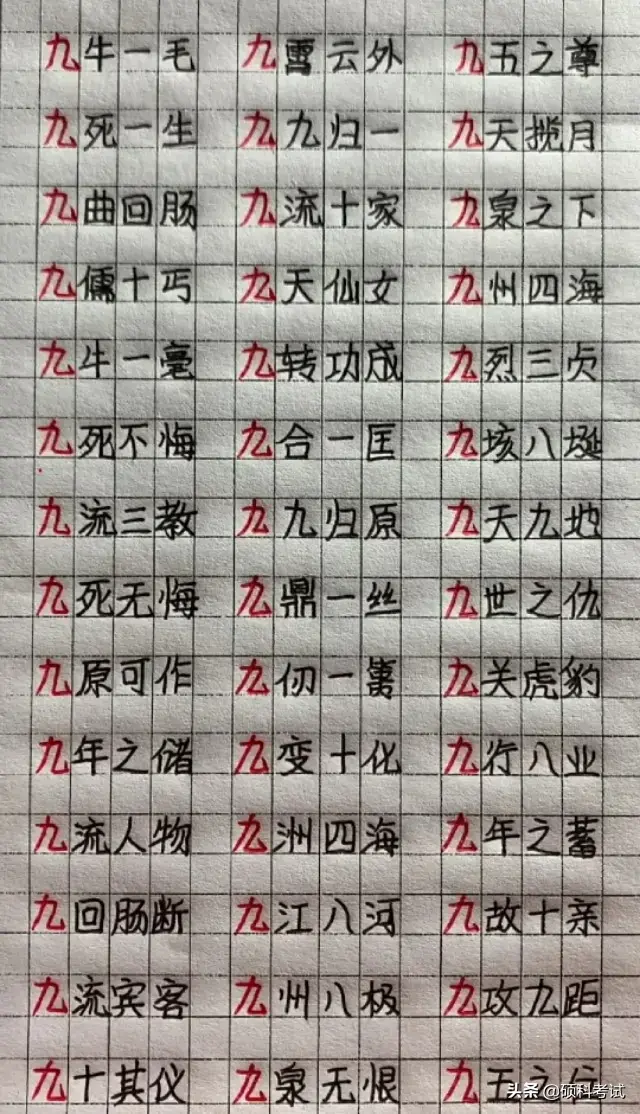 九牛一毛 九霄云外 九五之尊
九死一生 九九归一 九天揽月
九曲回肠 九流十家 九泉之下
九儒十丐 九天仙女 九州四海
九牛一毫 九转功成 九烈三贞
九死不悔 九合一匡 九垓八埏
九流三教 九九归原 九天九地
九死无悔 九鼎一丝 九世之仇
九原可作 九仞一篑 九关虎豹
九年之储 九变十化 九行八业
九流人物 九洲四海 九年之蓄
九回肠断 九江八河 九故十亲
九流宾客 九州八极 九攻九距
九十其仪 九泉无恨 九五之位
头条 @硕科考试